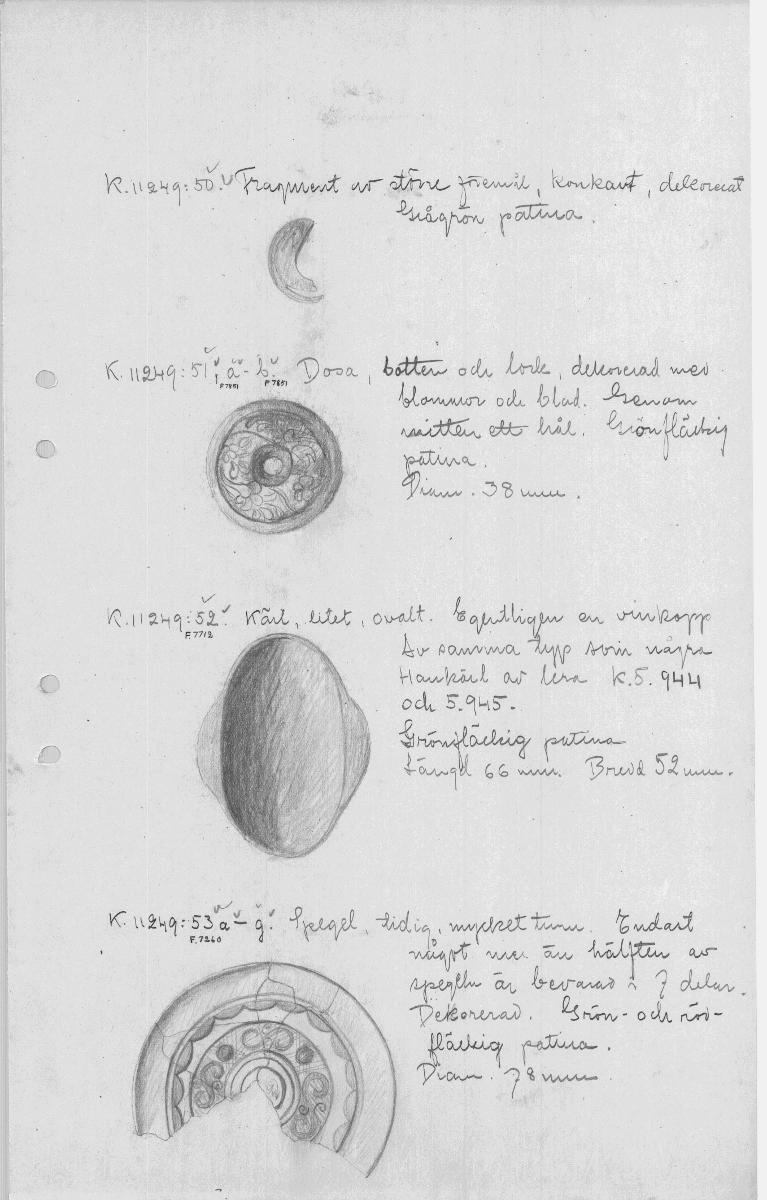 K.11249:50. Fragment av större föremål, konkavt, dekorerat
Grågrön patina.
K.11249:51, a - b. Dosa, botten och lock, dekorerad med
F.7851 F.7851
blommor och blad. Genom
mitten ett hål. Grönfläckig
patina.
Diam. 38 mm.
K.11249:52. Kärl, litet, ovalt. Egentligen en vinkopp
F.7712
Av samma typ som några
Hankärl av lera K.5.944
och 5.945.
Grönfläckig patina
Längd 66 mm. Bredd 52 mm.
K.11249:53 a - g. Spegel, tidig, mycket tunn. Endast
F.7260
något mer än hälften av
spegeln är bevarad i 7 delar.
Dekorerad. Grön- och röd-
fläckig patina.
Diam. 78 mm